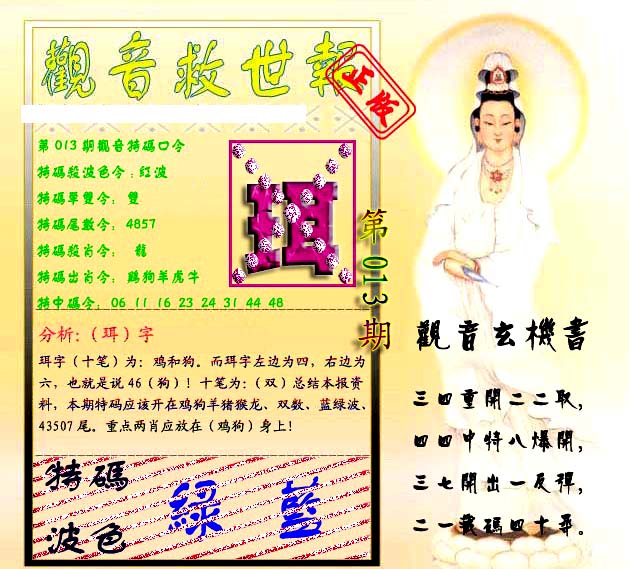 觀音救世報
正版
第013期觀音特碼口令
特碼殺波色令:紅波
特碼單雙令: 雙
特碼尾數令: 4857
特碼殺肖令: 龍
特碼出肖令: 鷄狗羊虎牛
特中碼令: 06 11 16 23 24 31 44 48
珥
第013期
分析:(珥)字
珥字(十笔)为: 鸡和狗。而珥字左边为四, 右边为
六, 也就是说46(狗)! 十笔为:(双)总结本报资
料, 本期特码应该开在鸡狗羊猪猴龙、双数、蓝绿波、
43507尾。重点两肖应放在(鸡狗)身上!
特碼
波色
綠 藍
觀音玄機書
三四重開二二取,
四四中特八爆開,
三七開出一反彈,
二一載碼四十尋。